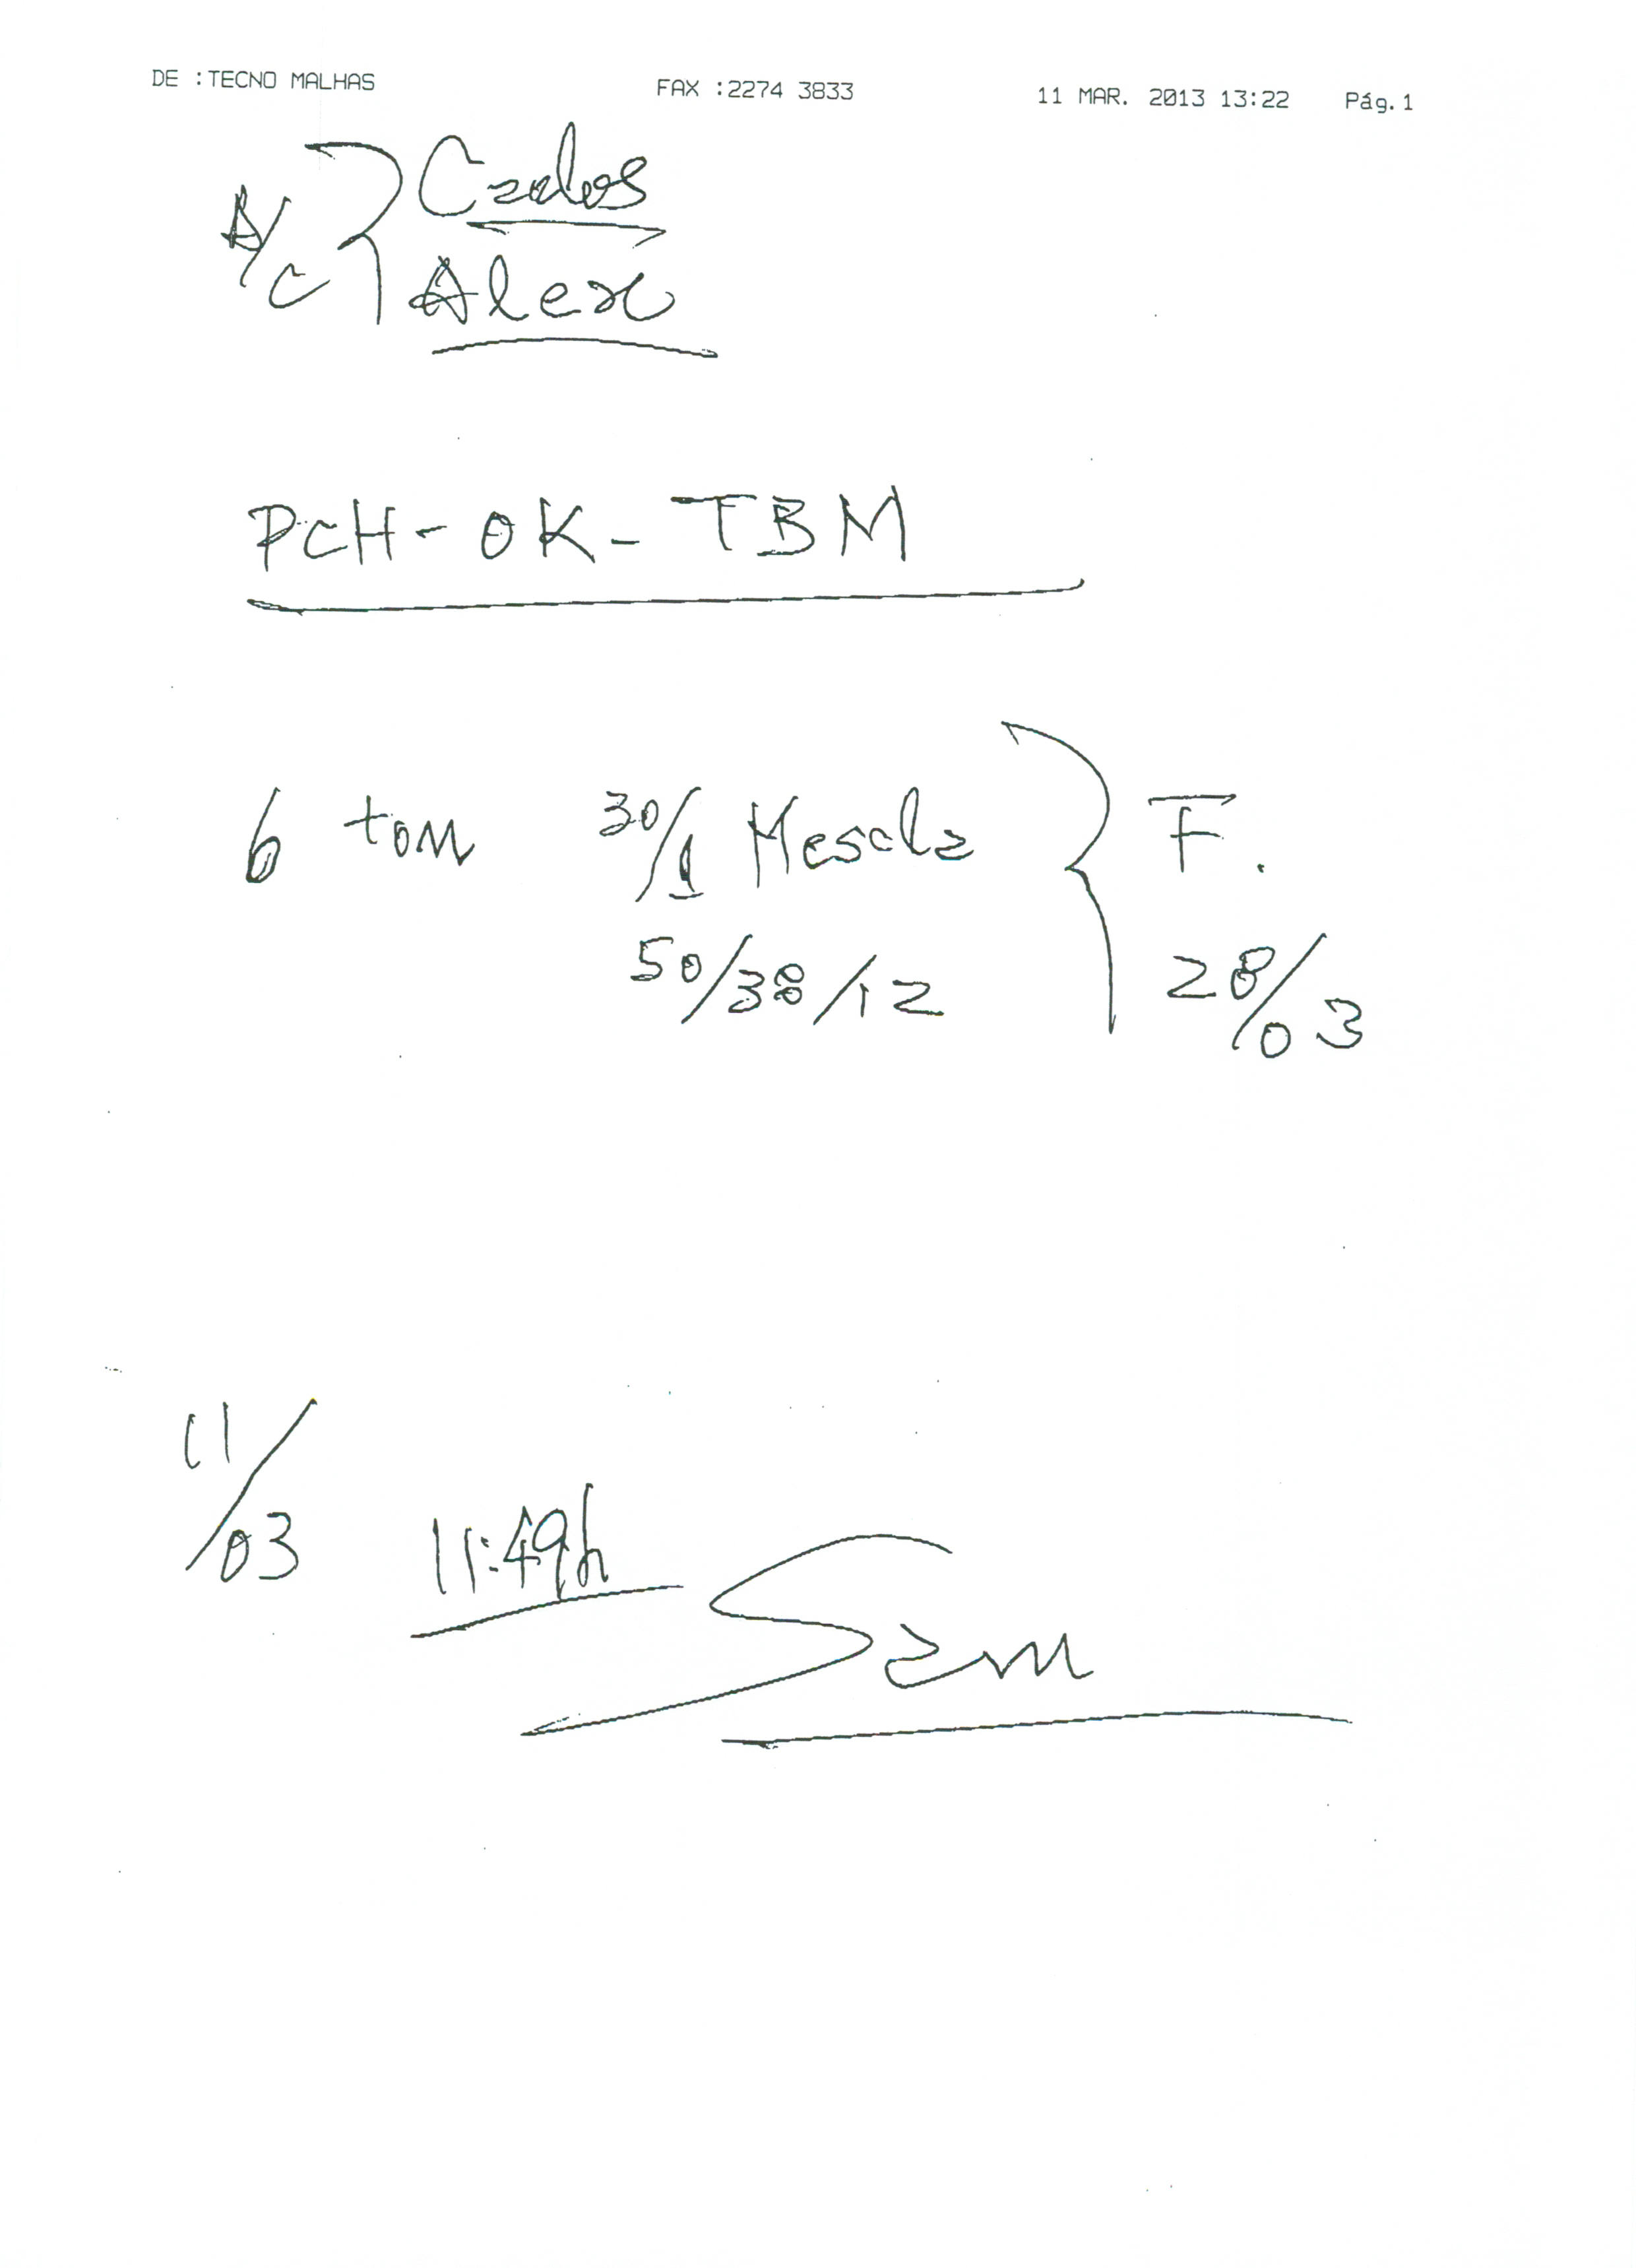 DE :TECNO MALHAS FAX :2274 3833 11 MAR. 2013 13:22 Pág.1
A/C Carlos
Alex
PCH-OK-TBM
6 ton 30/1 Mescla F.
50/38/12 28/03
11/03 11:49h
Sam